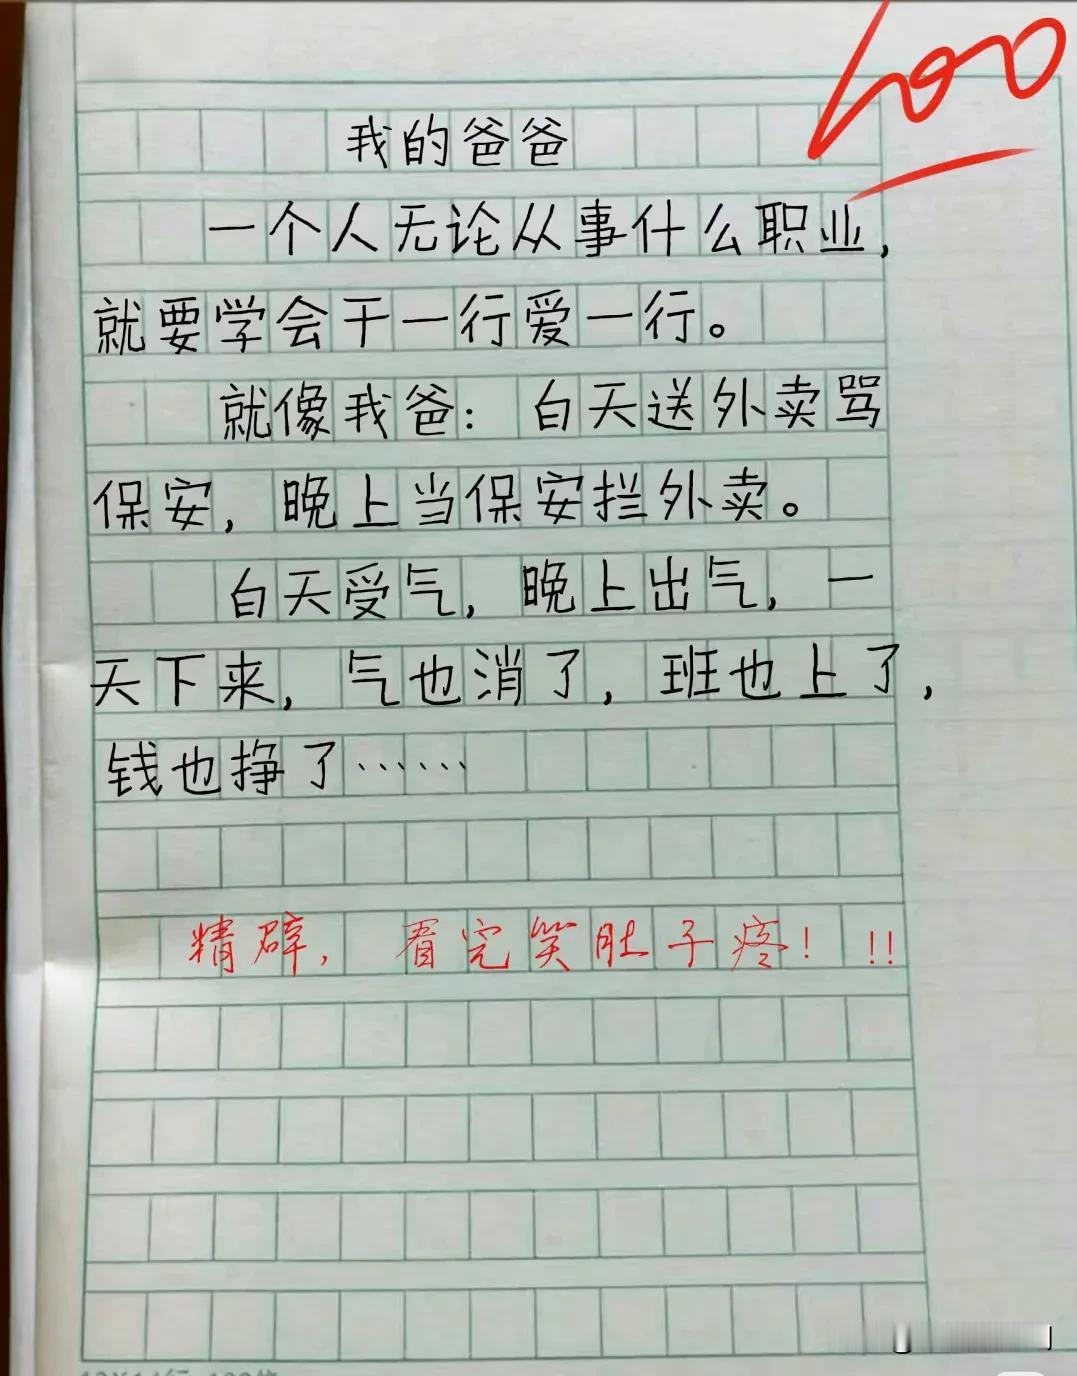 100
我的爸爸
一个人无论从事什么职业,
就要学会干一行爱一行。
就像我爸：白天送外卖骂
保安,晚上当保安拦外卖。
白天受气,晚上出气,一
天下来,气也消了,班也上了,
钱也挣了……
精辟,看完笑肚子疼!!!